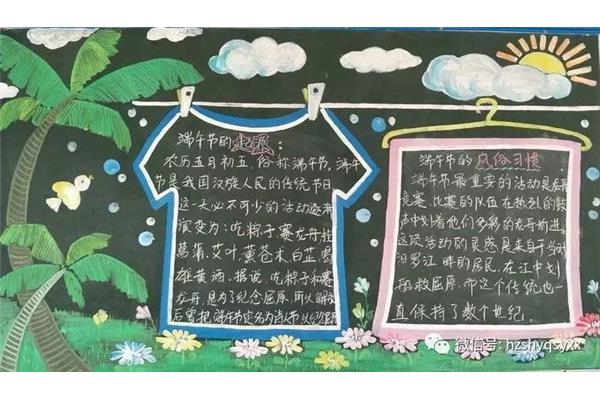 端午节的起源：
农历五月初五，俗称端午节，端午
节是我国汉族人民的传统节日
这一天必不可少的活动逐渐
演变为：吃粽子，赛龙舟，挂
菖蒲、艾叶、薰苍术、白芷，喝
雄黄酒。据说，吃粽子和赛
龙舟，是为了纪念屈原，所以解放
后曾把端午节定名为诗人节，以纪念屈原
端午节的风俗习惯
端午节最重要的活动是龙舟
竞赛，比赛的队伍在热烈的鼓
声中划着他们多彩的龙舟前进。
这项活动的灵感是来自于当时
汨罗江畔的居民，在江中划
船救屈原，而这个传统也一
直保持了数个世纪。
微信号: hzshyqsyxx